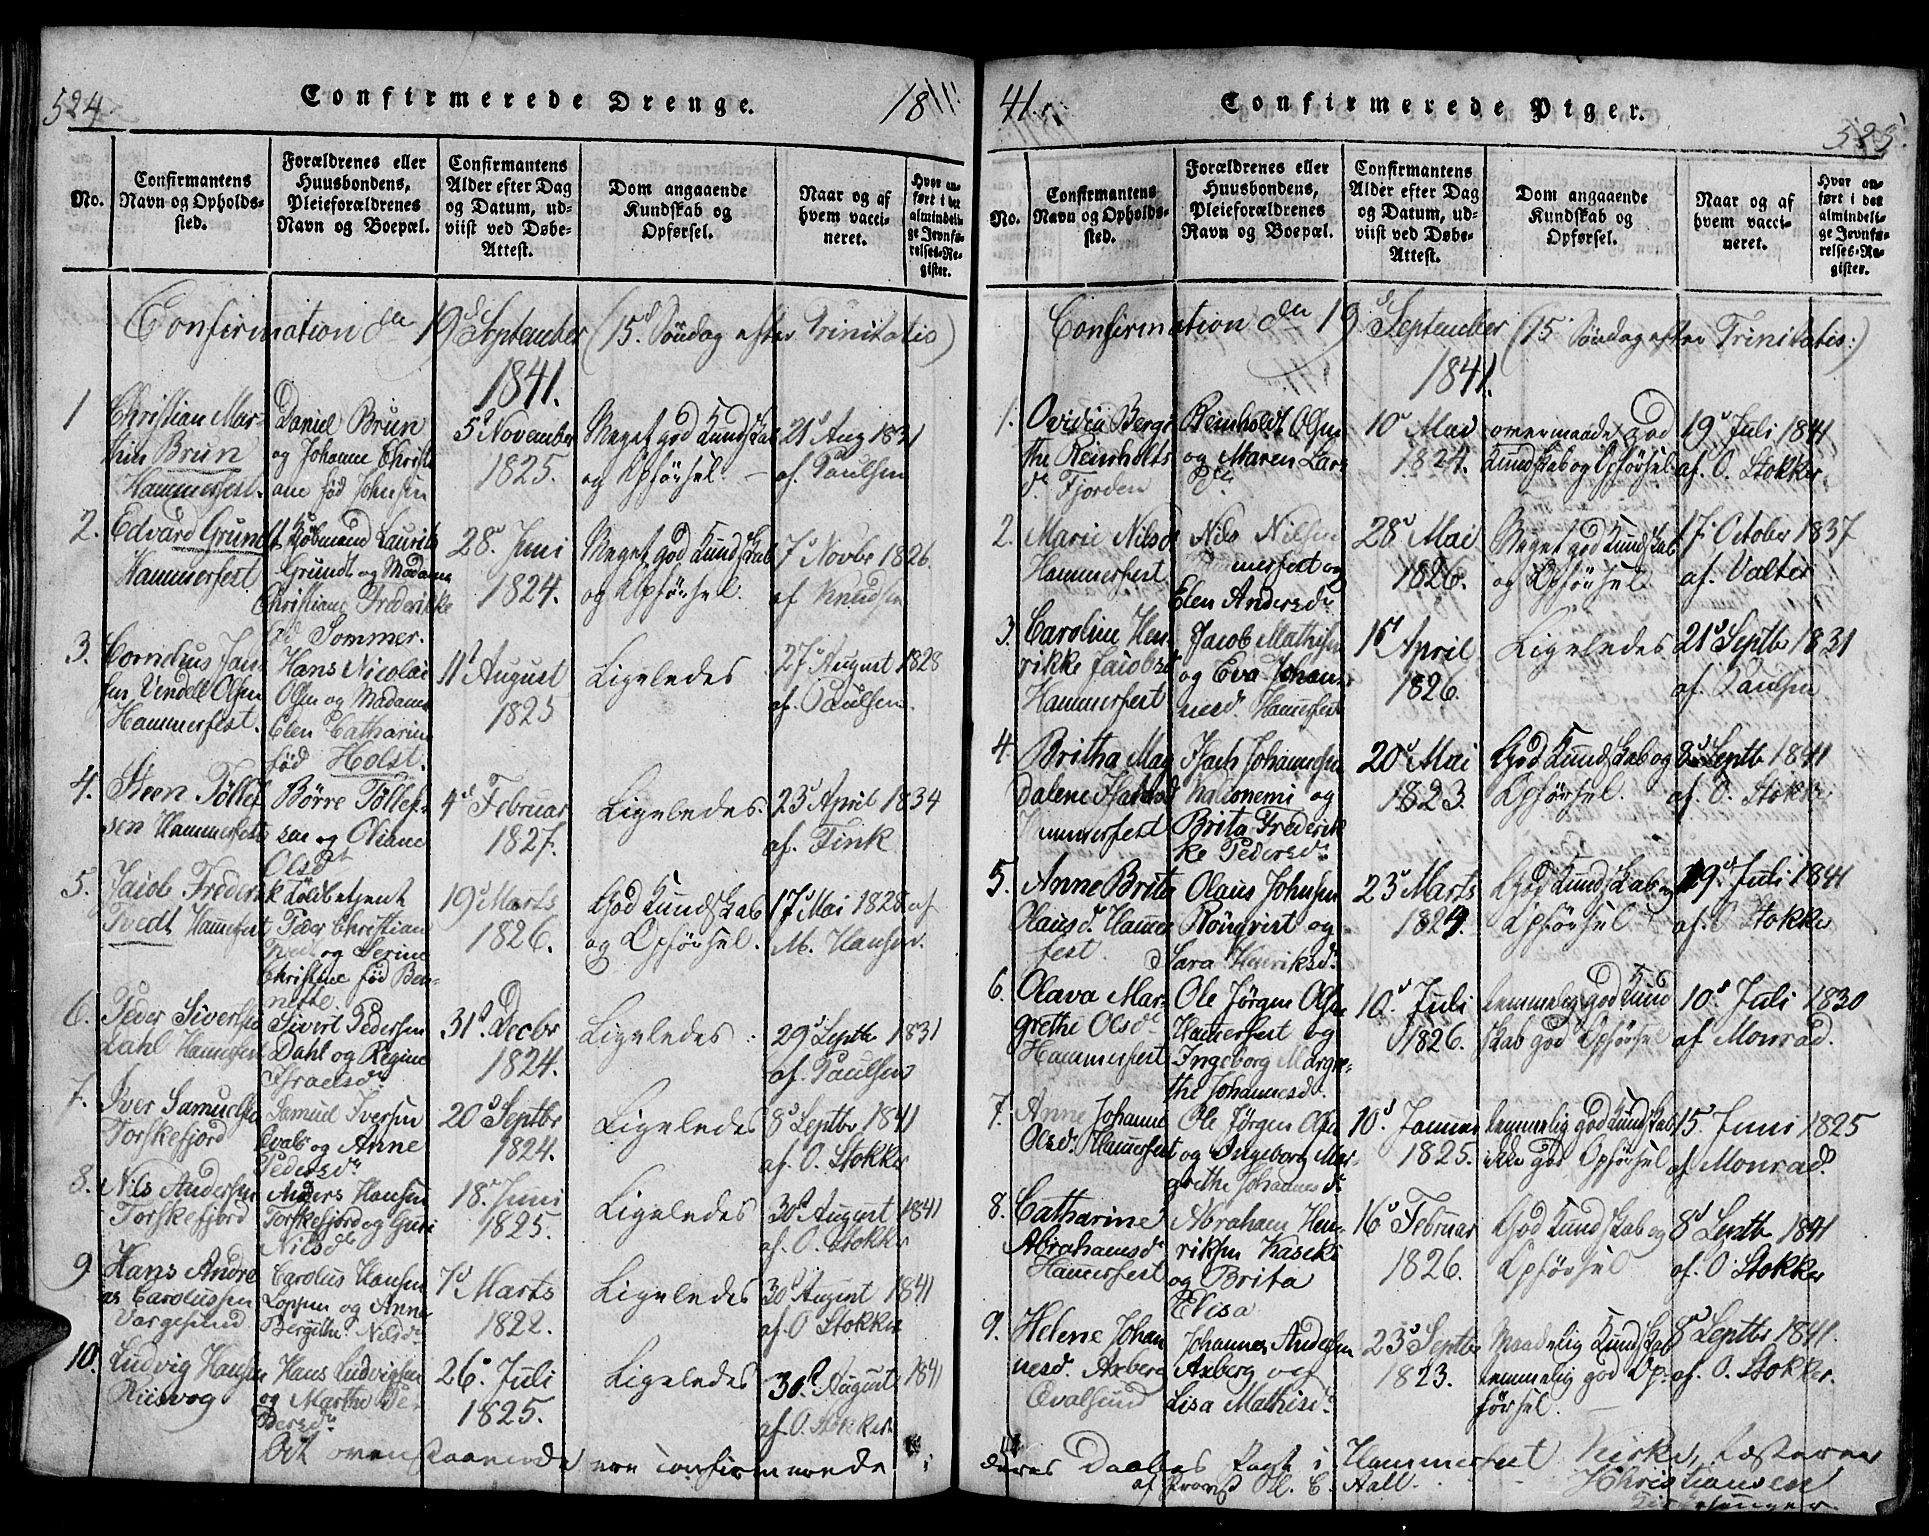 524.
Confirmerede Drenge.
18
No.
Confirmantens Navn og Opholdssted.
Forældrenes eller Huusbondens, Pleieforældrenes Navn og Boepæl.
Confirmantens Alder efter Dag og Datum, udviist ved Døbe-Attest.
Dom angaaende Kundskab og Opførsel.
Naar og af hvem vaccineret.
Hvor anført i det almindelige Jevnførelses-Register.
Confirmation den 19d September (15d Søndag efter Trinitatis)
1841.
1
Christian Mar-
thin Brun
Hammerfest.
Daniel Brun
og Johanne Christi
ane fød Johnsen
5d November
1825.
Meget god Kundskab
og Opførsel.
21d Aug 1831
af. Paulsen
2.
Edvard Grundt
Hammerfest
Kjøbmand Laurits
Grundt og Madame
Christiane Frederikke
fød Sommer.
28d Juni
1824.
Meget god Kundskab
og Opførsel.
7d Novbr 1826
af Knudsen
3.
Cornelius Jan
sen Vindell Olsen
Hammerfest.
Hans Nicolai
Olsen og Madame
Elen Catharine
fød Holst.
11d August
1825
Ligeledes
27d August 1828
af. Paulsen.
4.
Steen Tøllef
sen Hammerfest
Børre Tøllef-
sen og Oliane
Olsdr
4d Februar
1827.
Ligeledes.
23d April 1834
af. Fink
5.
Jacob Frederik
Tvedt Hammerfest
Toldbetjent
Peder Christian
Tvedt og Serine
Christine fød Ben-
nette.
19d Marts
1826.
God Kundskab
og Opførsel.
17d Mai 1828 af
M. Hansen.
6.
Peder Sivertsen
Dahl Hammerfest
Sivert Pedersen
Dahl og Regine
Israelsdr
31d Decbr
1824.
Ligeledes
29d Septbr 1831
af. Paulsen
7.
Iver Samuelsen
Torskefjord
Samuel Iversen
Qvals og Anne
Pedersdr
20d Septbr
1824.
Ligeledes
8d Septbr 1841
af. O. Stokke
8.
Nils Andersen
Torskefjord
Anders Hansen
Torskefjord og Guri
Nilsdr
18d Juni
1825.
Ligeledes
30d August 1841
af. O. Stokke
9
Hans Andre
as Carolussen
Vargesund
Carolus Hansen
Loppen og Anne
Bergithe Nilsdr
7d Marts
1822.
Ligeledes
30d August 1841
af. O Stokke
10.
Ludvig Hansen
Riisvog
Hans Ludvigsen
og Marthe Pe-
dersdr
26d Juli
1825.
Ligeledes
30d August 1841
af. O. Stokke.
At ovenstaaende ere confirmerede
41.
Confirmerede Piger.
525.
No.
Confirmantens Navn og Opholdssted.
Forældrenes eller Huusbondens, Pleieforældrenes Navn og Boepæl.
Confirmantens Alder efter Dag og Datum, udviist ved Døbe-Attest.
Dom angaaende Kundskab og Opførsel.
Naar og af hvem vaccineret.
Hvor anført i det almindelige Jevnførelses-Register.
Confirmation den 19d September (15 Søndag efter Trinitatis:)
1841.
1.
Ovidia Berge
the Reinholts
dr Fjorden
Reinholdt Olsen
og Maren Lars
dr
10d Mai
1824.
overmaade god
Kundskab og Opførsel.
19d Juli 1841
af. O. Stokke.
2.
Marie Nilsdr
Hammerfest
Nils Nilsen
merfest og
Elen Andersdr
28d Mai
1826.
Meget god Kundskab
og Opførsel
17d October 1837
af. Valter
3.
Caroline Hen
rikke Jacobsdr
Hammerfest
Jacob Mathisen
og Eva Johan-
nesd. Hammerfest
16d April
1826.
Ligeledes
21d Septbr 1831
af. Paulsen
4.
Britha Mag
dalene Isaksdr
Hammerfest
Isach Johannesen
og
Brita Frederik
ke Pedersdr
20d Mai
1823.
God Kundskab og
Opførsel.
8d Septb 1841
af. O. Stokke
5.
Anne Brita
Olausdr Hammer
fest.
Olaus Johnsen
Rönqvist og
Sara Henriksdr
23d Marts
1824.
God Kundskab og
Opførsel
19d Juli 1841
af. O Stokke
6.
Olava Mar-
grethe Olsdr
Hammerfest
Ole Jørgen Olsen
Hammerfest og
Ingeborg Margre-
the Johannesdr.
10d Juli
1826.
temmelig god Kund
skab god Opførsel
10d Juli 1830
af Monrad.
7.
Anne Johanne
Olsdr Hammerfest
Ole Jørgen Olsen
og Ingeborg Mar-
grethe Johannesdr
10d Januar
1825.
temmelig god Kundskab
ikke god Opførsel
15d Juni 1825
af Monrad.
8.
Catharine
Abrahamsdr
Hammerfest
Abraham Hen-
riksen Kaseks
og Brita
Elisa
16d Februar
1826.
God Kundskab og
Opførsel
8d Septb 1841
af. O. Stokke
9.
Helene Johan
nesd. Axberg
Qvalsund
Johannes Andersen
Axberg og
Lisa Mathisdr
23d Septbr
1823.
Maadelig Kundskab
temmelig god Op-
førsel.
8d Septbr 1841.
af. O. Stokke.
deres Daabes Pagt i Hammerfest Kirke, testerer
af Provst Hl. C. Aall.
HChristiansen
Kirkesanger.